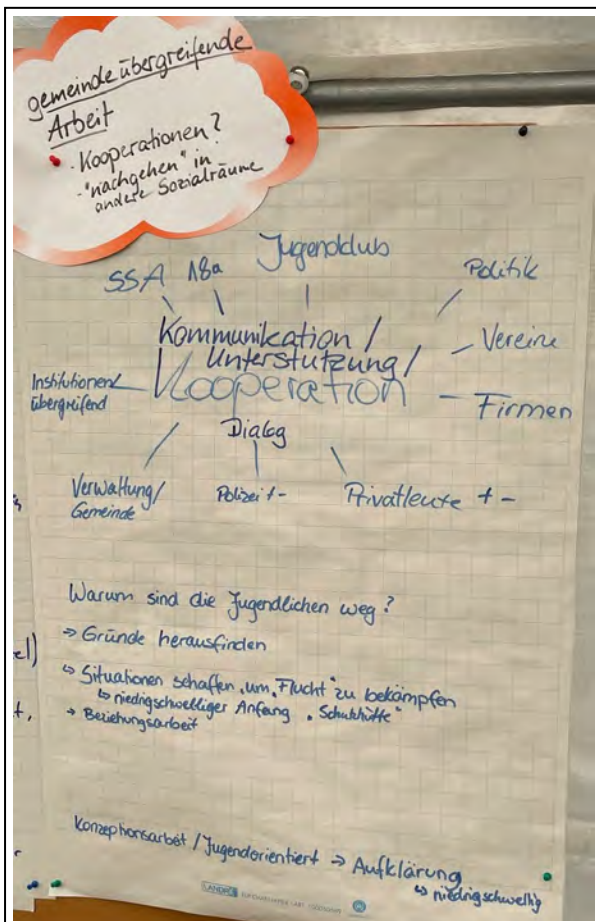 gemeindeübergreifende
Arbeit
- Kooperationen?
- "nachgehen" in
andere Sozialräume
SSA 18a Jugendclub Politik
Kommunikation /
Unterstützung /
Kooperation
Vereine
Institutionen/
übergreifend
Firmen
Dialog
Verwaltung/
Gemeinde
Polizei + -
Privatleute + -
Warum sind die Jugendlichen weg?
→ Gründe herausfinden
↳ Situationen schaffen, um "Flucht" zu bekämpfen
↳ niedrigschwelliger Anfang "Schutzhütte"
→ Beziehungsarbeit
Konzeptionsarbeit / Jugendorientiert → Aufklärung
↳ niedrigschwellig